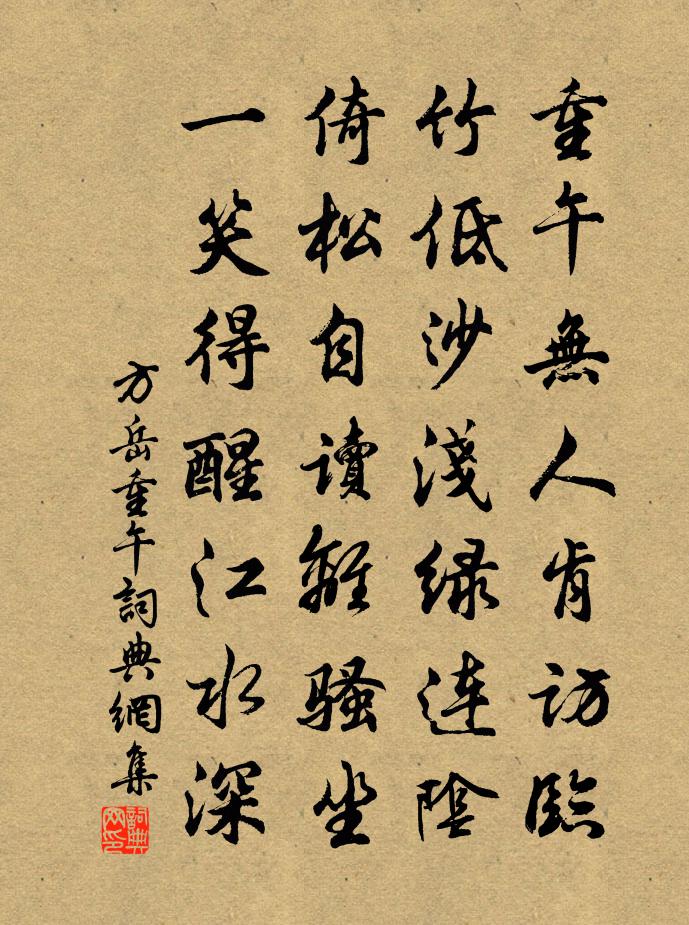 重午無人肯訪臨
竹低沙淺綠連陰
倚松自讀離騷坐
一笑得醒江水深
方岳重午詞典網集
詞典網印